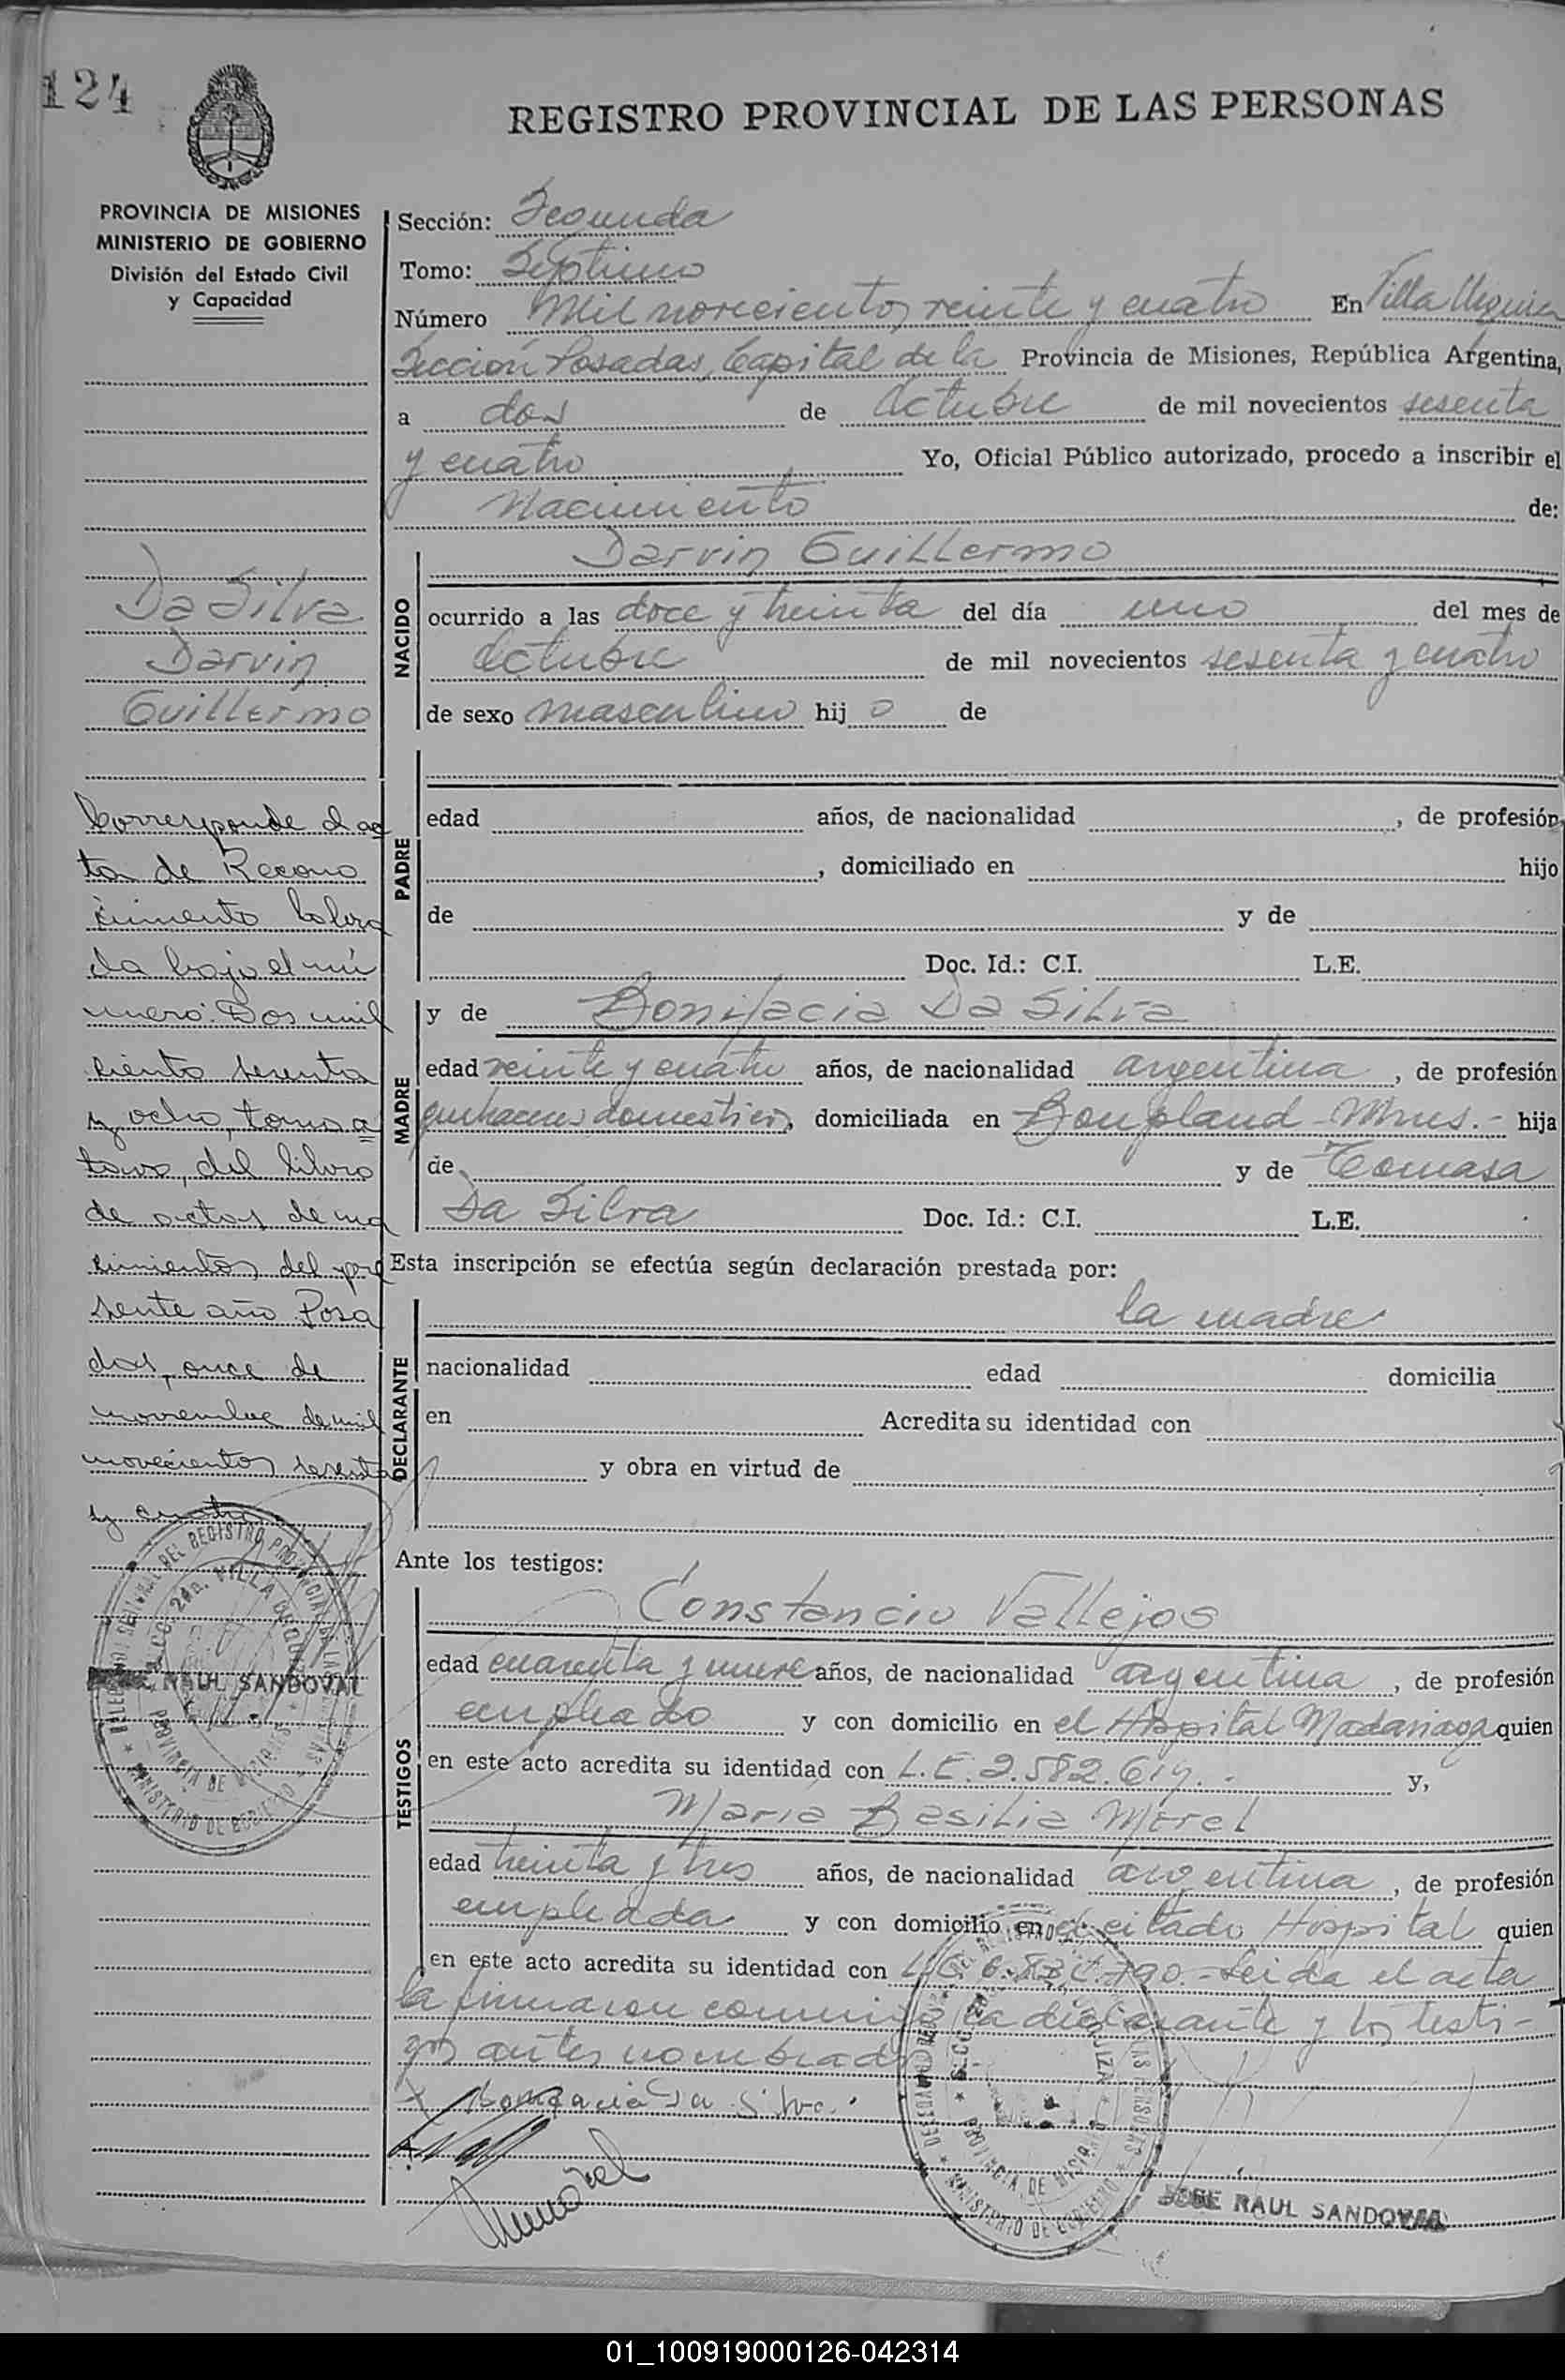 124
REGISTRO PROVINCIAL DE LAS PERSONAS
PROVINCIA DE MISIONES
MINISTERIO DE GOBIERNO
División del Estado Civil
y Capacidad
Sección: Segunda
Tomo: Septimo
Número Mil novecientos veinte y cuatro En Villa Urquiza
Sección Posadas, Capital de la Provincia de Misiones, República Argentina,
a dos de Octubre de mil novecientos sesenta
y cuatro Yo, Oficial Público autorizado, procedo a inscribir el
Nacimiento de:
Da Silva
Darvin
Guillermo
Corresponde al ac
ta de Recono
cimiento labra
da bajo el nú
mero: Dos mil
ciento sesenta
y ocho, tomo oc
tavo, del libro
de actas de na
cimientos del pre
sente año Posa
das, once de
noviembre de mil
novecientos sesenta
y cuatro
RAUL SANDOVAL
NACIDO
Darvin Guillermo
ocurrido a las doce y treinta del día uno del mes de
Octubre de mil novecientos sesenta y cuatro
de sexo masculino hijo de
PADRE
edad años, de nacionalidad , de profesión
, domiciliado en hijo
de y de
Doc. Id.: C.I. L.E.
MADRE
y de Bonifacia Da Silva
edad veinte y cuatro años, de nacionalidad argentina, de profesión
quehaceres domesticos, domiciliada en Bonpland - Mnes. - hija
de y de Tomasa
Da Silva Doc. Id.: C.I. L.E.
Esta inscripción se efectúa según declaración prestada por:
DECLARANTE
la madre
nacionalidad edad domicilia
en Acredita su identidad con
y obra en virtud de
Ante los testigos:
TESTIGOS
Constancio Vallejos
edad cuarenta y nueve años, de nacionalidad argentina, de profesión
empleado y con domicilio en el Hospital Madariaga quien
en este acto acredita su identidad con L.E. 2.582.619.- y,
Maria Basilia Morel
edad treinta y tres años, de nacionalidad argentina, de profesión
empleada y con domicilio en el citado Hospital quien
en este acto acredita su identidad con Leida el acta
la firmaron conmigo la declarante y los testi-
gos antes nombrados
Bonifacia Da Silva
JOSE RAUL SANDOVAL
01_100919000126-042314